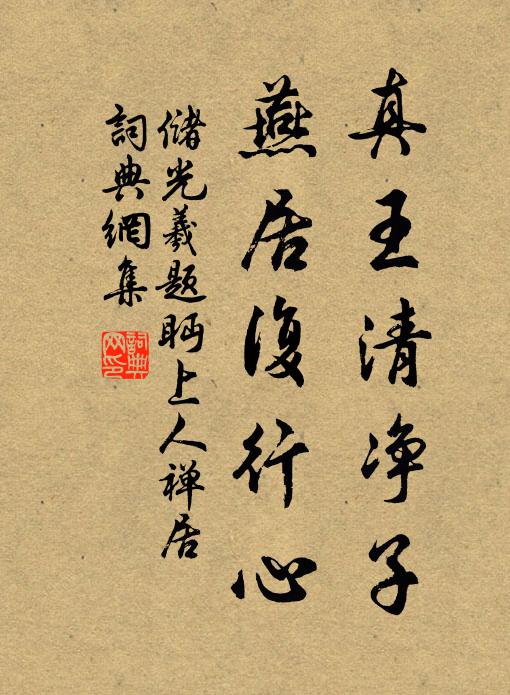 真王清净子
燕居復行心
儲光羲題眄上人禅居
詞典網集
詞典网印